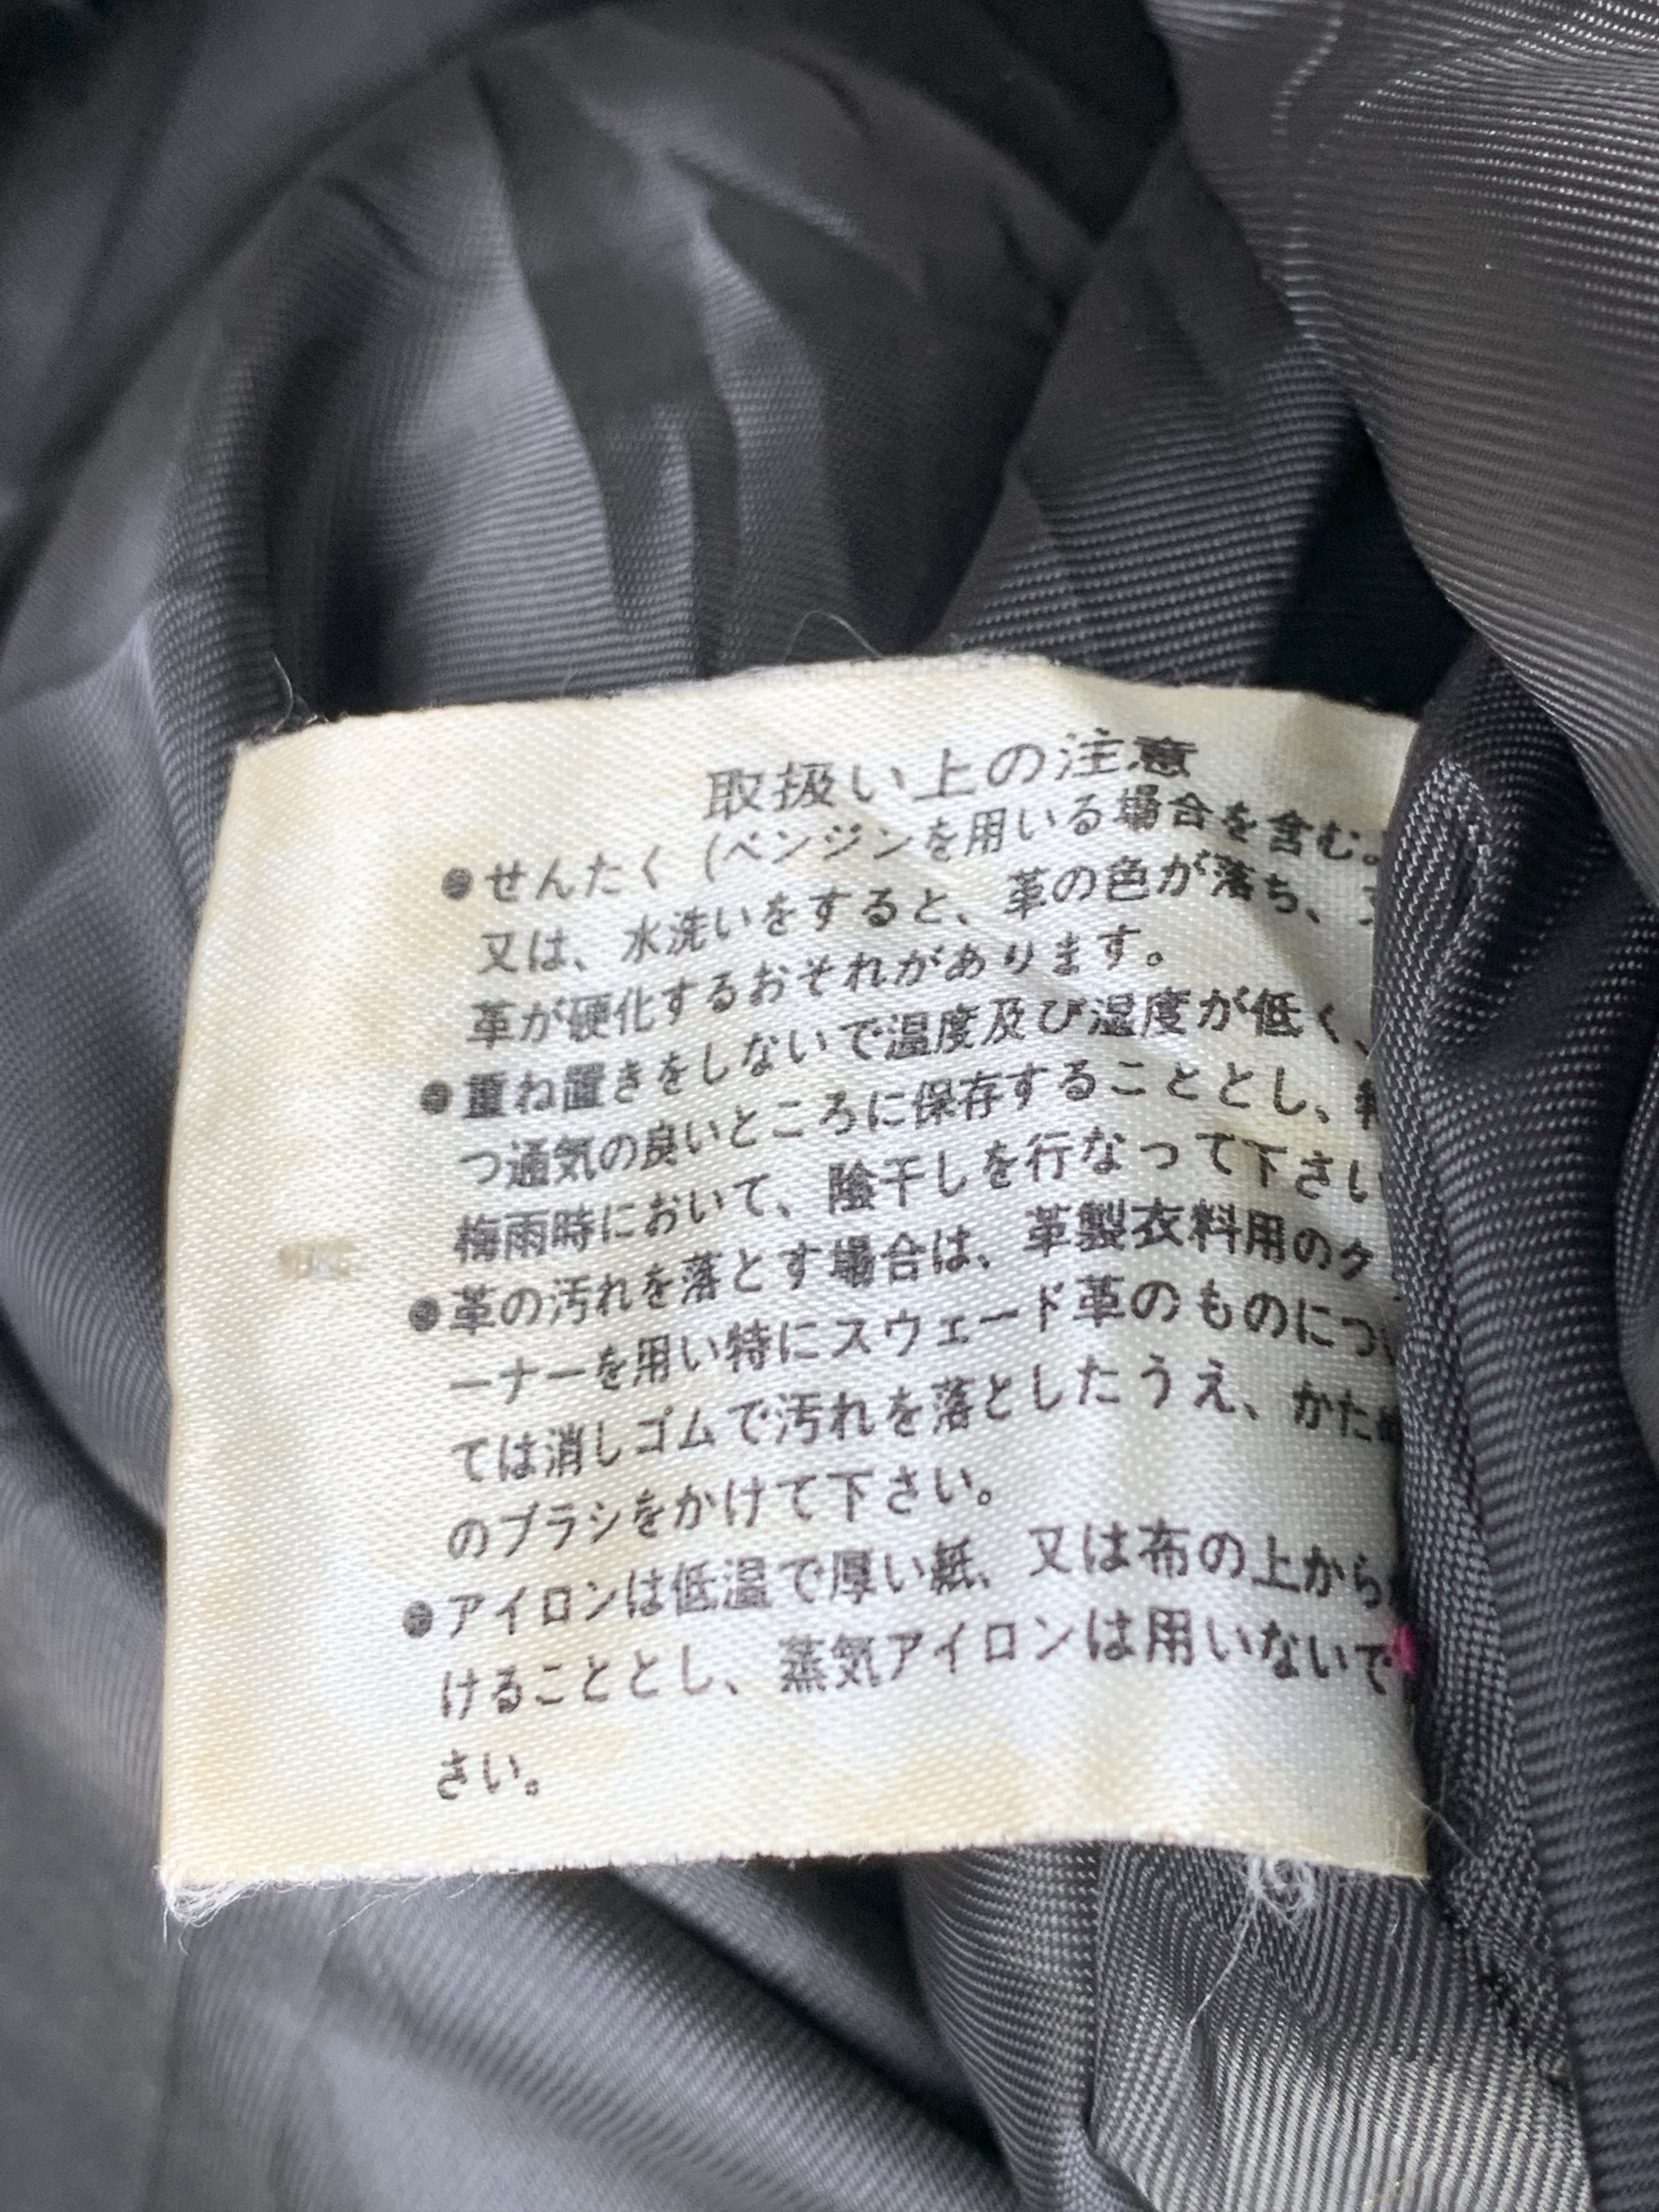 取扱い上の注意
●せんたく(ベンジンを用いる場合を含む。
又は、水洗いをすると、革の色が落ち、又
革が硬化するおそれがあります。
●重ね置きをしないで温度及び湿度が低く、
つ通気の良いところに保存することとし、特
梅雨時において、陰干しを行なって下さい
●革の汚れを落とす場合は、革製衣料用のク
ーナーを用い特にスウェード革のものについ
ては消しゴムで汚れを落としたうえ、かため
のブラシをかけて下さい。
●アイロンは低温で厚い紙、又は布の上から
けることとし、蒸気アイロンは用いないで
さい。